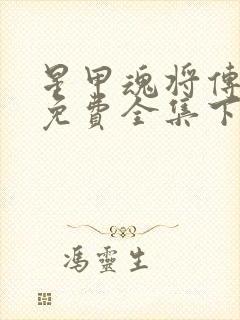 星甲魂将傳
免費全集下
馮靈生